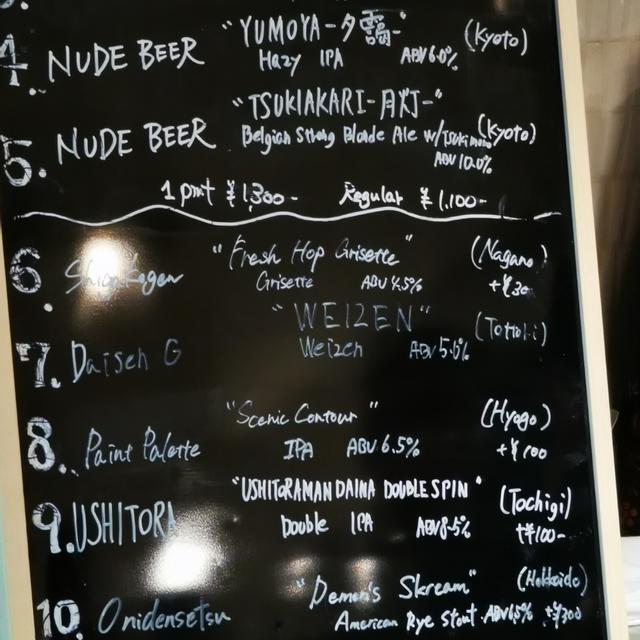 4. NUDE BEER "YUMOYA-夕靄-" (Kyoto)
Hazy IPA ABV 6.0%
"TSUKIAKARI-月灯-"
5. NUDE BEER Belgian Strong Blonde Ale w/ (Kyoto)
ABV 10.0%
1 pint ¥1,300- Regular ¥1,100-
6. Shigakogen "Fresh Hop Grisette" (Nagano)
Grisette ABV 4.5%
7. Daisen G "WEIZEN" (Tottori)
Weizen ABV 5.0%
8. Paint Palette "Scenic Contour" (Hyogo)
IPA ABV 6.5% +¥100
9. USHITORA "USHITORAMAN DAINA DOUBLE SPIN" (Tochigi)
Double IPA ABV 8.5% +¥100-
10. Onidensetsu "Demon's Skream" (Hokkaido)
American Rye Stout ABV 6.5% +¥300